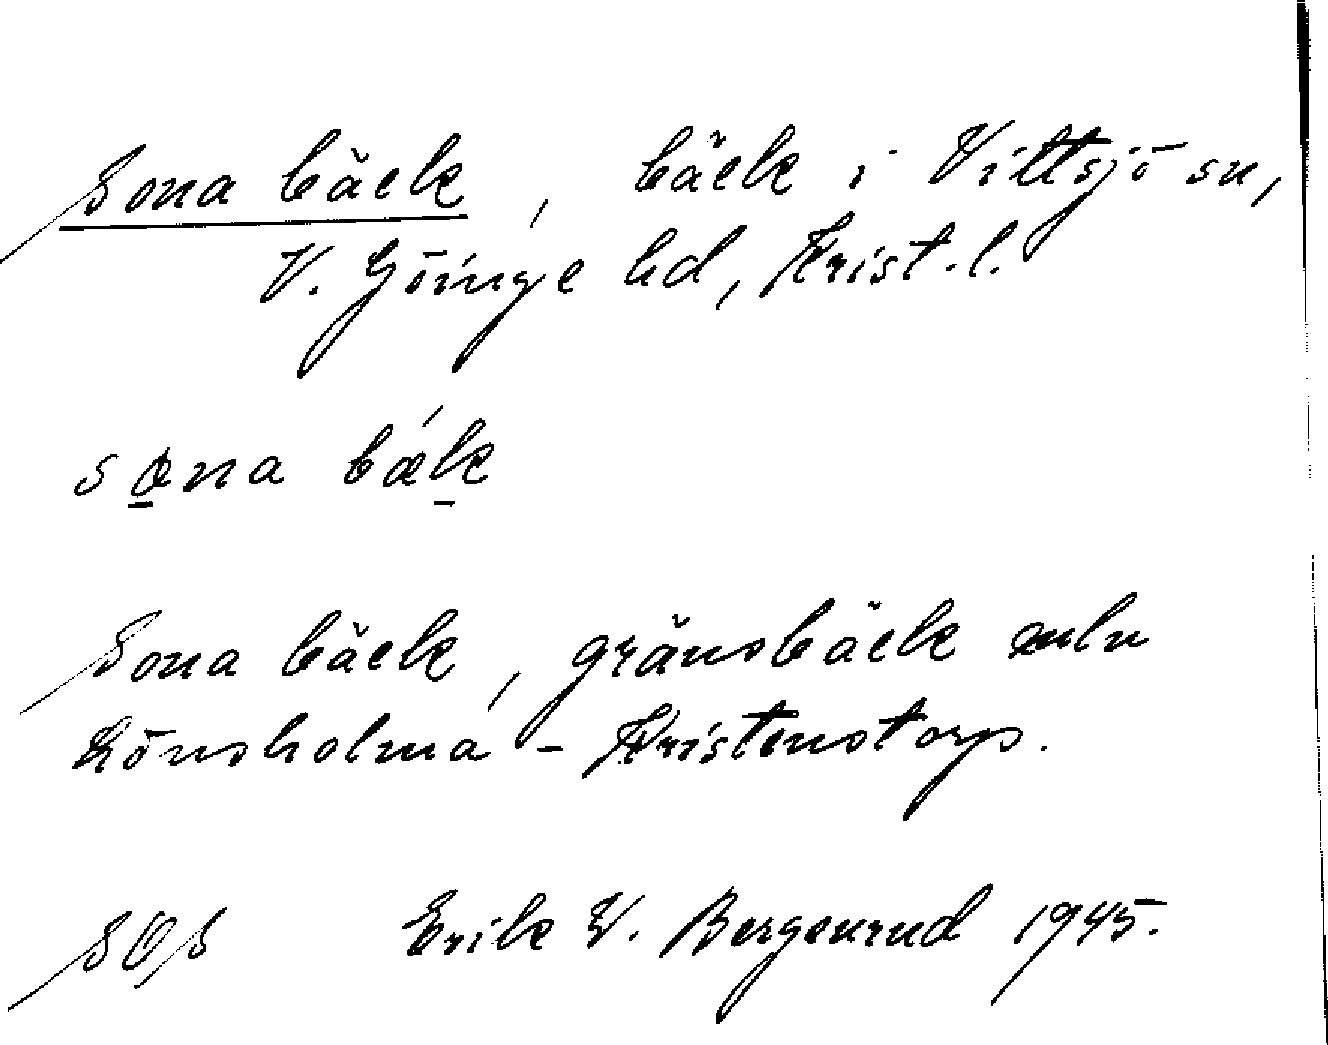 Sona bäck, bäck i Vittsjö sn,
V. Göinge hd, Krist. l.
søna bǽk
Sona bäck, gränsbäck mln
Lönsholma - Kristenstorp.
SOS Erik W. Bergenrud 1945.